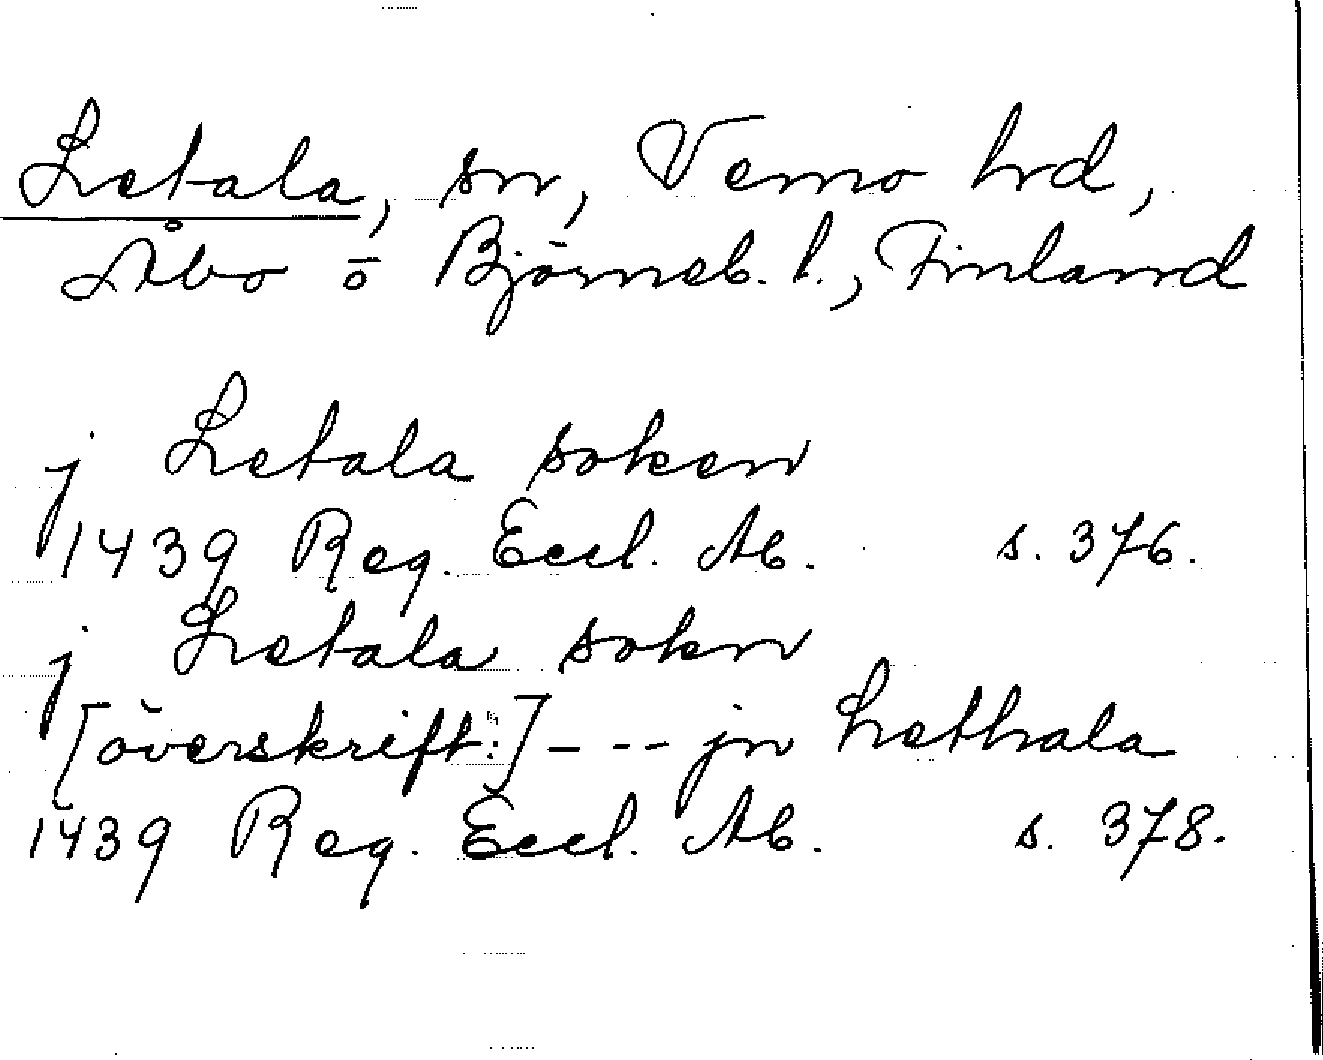 Letala, sn, Vemo hrd,
Åbo o Björneb. l., Finland
j Letala soken
1439 Reg. Eccl. Ab. s. 376.
j Letala sokn
[överskrift:] --- jn Lethala
1439 Reg. Eccl. Ab. s. 378.